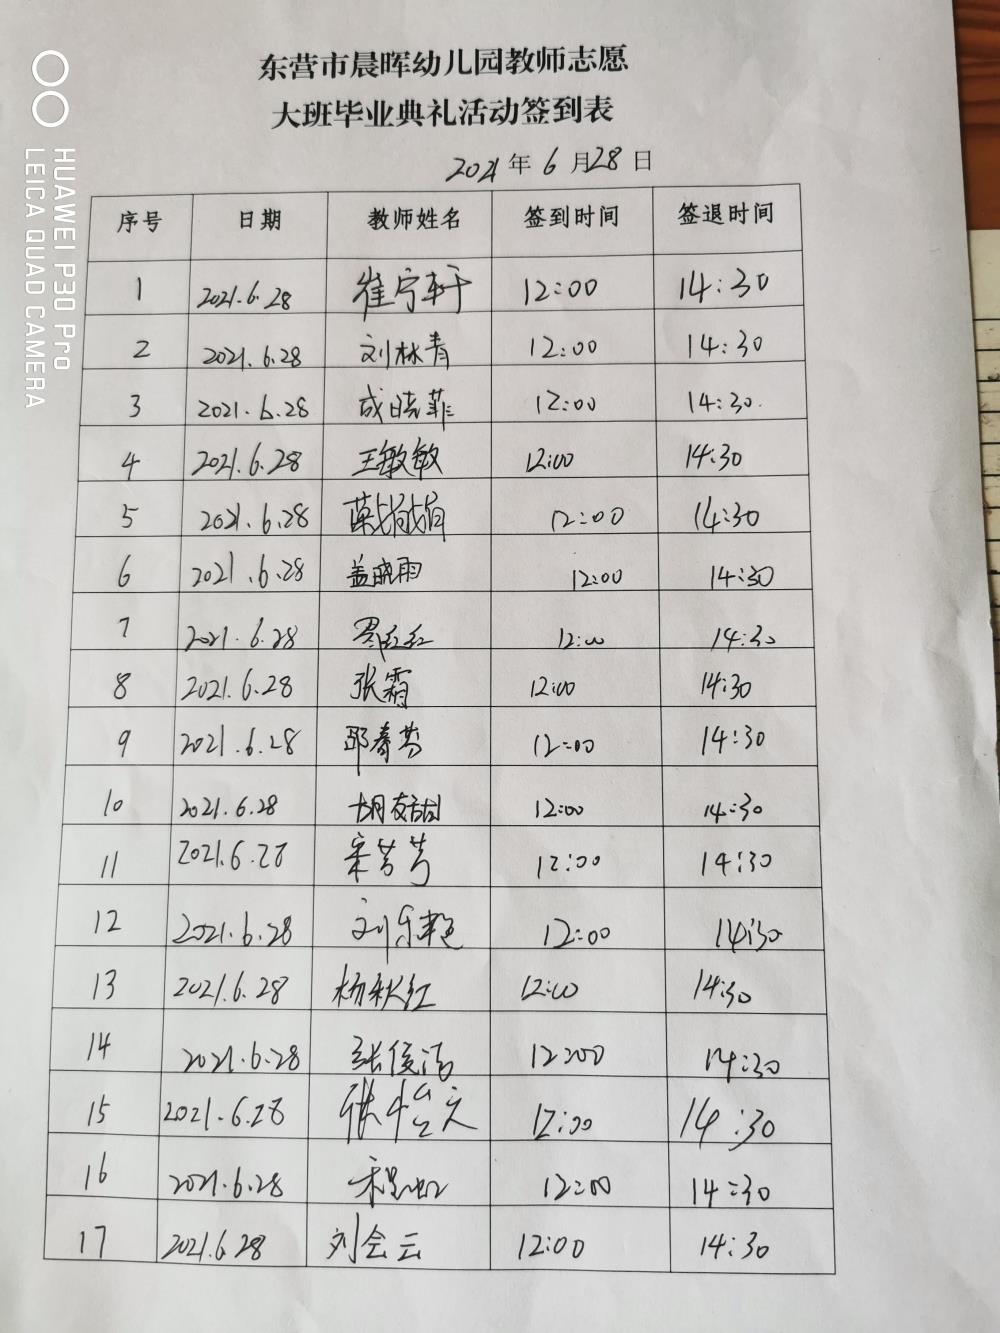 东营市晨晖幼儿园教师志愿
大班毕业典礼活动签到表
2021年6月28日
序号 日期 教师姓名 签到时间 签退时间
1 2021.6.28 崔宁轩 12:00 14:30
2 2021.6.28 刘林青 12:00 14:30
3 2021.6.28 成晓菲 12:00 14:30
4 2021.6.28 王敏敏 12:00 14:30
5 2021.6.28 12:00 14:30
6 2021.6.28 盖晓雨 12:00 14:30
7 2021.6.28 12:00 14:30
8 2021.6.28 张霜 12:00 14:30
9 2021.6.28 邵春芳 12:00 14:30
10 2021.6.28 12:00 14:30
11 2021.6.28 宋芳芳 12:00 14:30
12 2021.6.28 刘乐艳 12:00 14:30
13 2021.6.28 杨秋红 12:00 14:30
14 2021.6.28 张俊 12:00 14:30
15 2021.6.28 张怡文 12:00 14:30
16 2021.6.28 12:00 14:30
17 2021.6.28 刘会云 12:00 14:30
HUAWEI P30 Pro
LEICA QUAD CAMERA